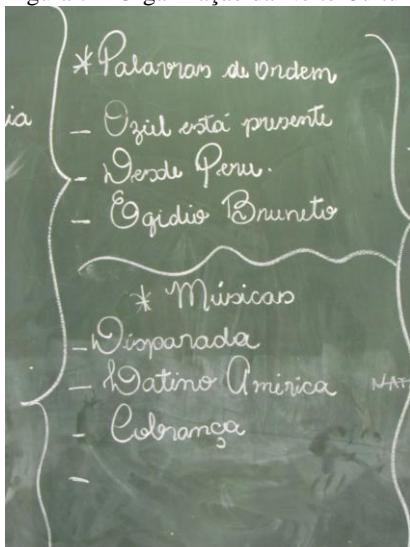 * Palavras de ordem
ia
- Oziel está presente
- Desde Peru.
- Egidio Bruneto
* Músicas
- Disparada
- Latino América
NAT
- Cobrança
-